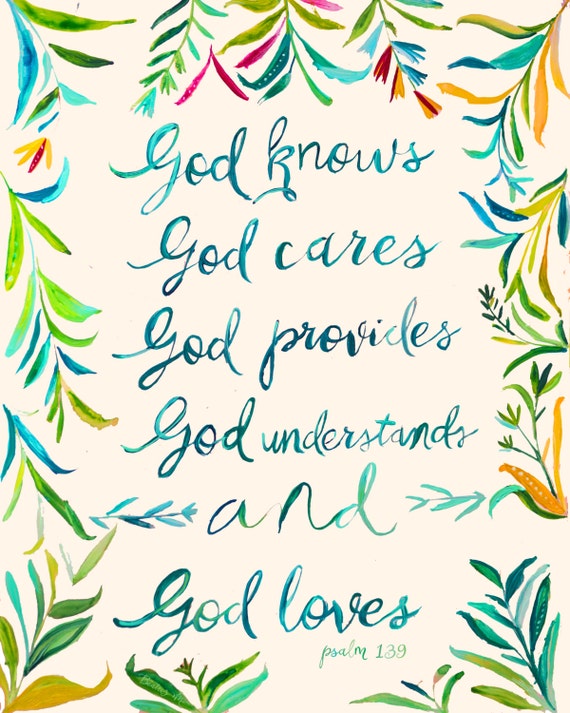 God knows
God cares
God provides
God understands
and
God loves
psalm 139